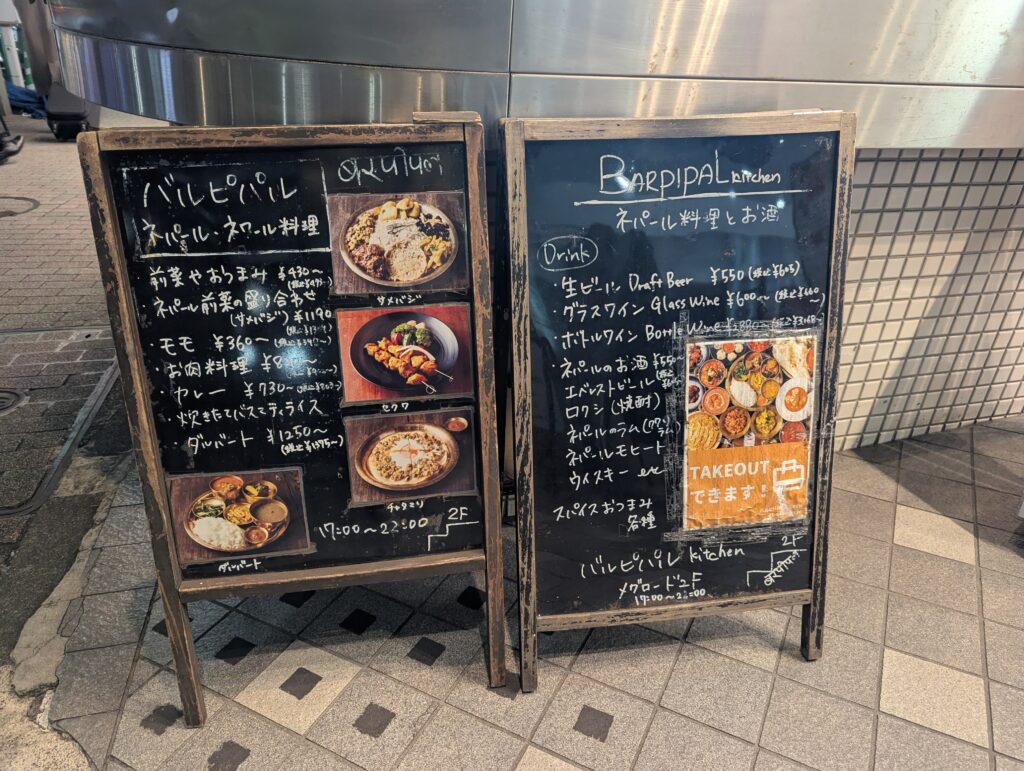 バルピパル
बारपीपल
ネパール・ネワール料理
・前菜やおつまみ ¥430〜
・ネパール前菜の盛り合わせ
(サメバジ) ¥1190
・モモ ¥360〜
・お肉料理
・カレー ¥730〜
・炊きたてバスマティライス
・ダルバート ¥1250〜
(税込¥1375〜)
サメバジ
セクワ
チャタモリ
ダルバート
17:00〜22:00
2F
BARPIPAL Kitchen
ネパール料理とお酒
Drink
・生ビール Draft Beer ¥550 (税込¥605)
・グラスワイン Glass Wine ¥600〜 (税込¥660〜)
・ボトルワイン Bottle Wine
・ネパールのお酒 ¥550〜
エベレストビール
ロクシ (焼酎)
ネパールのラム (ククリラム)
ネパールモヒート
ウイスキー etc
スパイスおつまみ
各種
TAKEOUT
できます!
バルピパル Kitchen
メグロード2F
2F